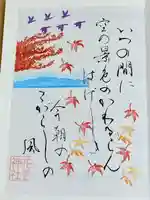 いつの間に
空の景色のかわるらん
はげしき
今朝の
こがらしの
風